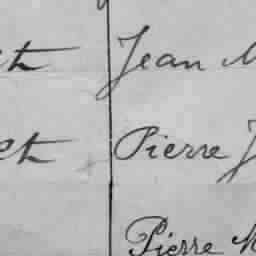 Jean M
Pierre J
Pierre M